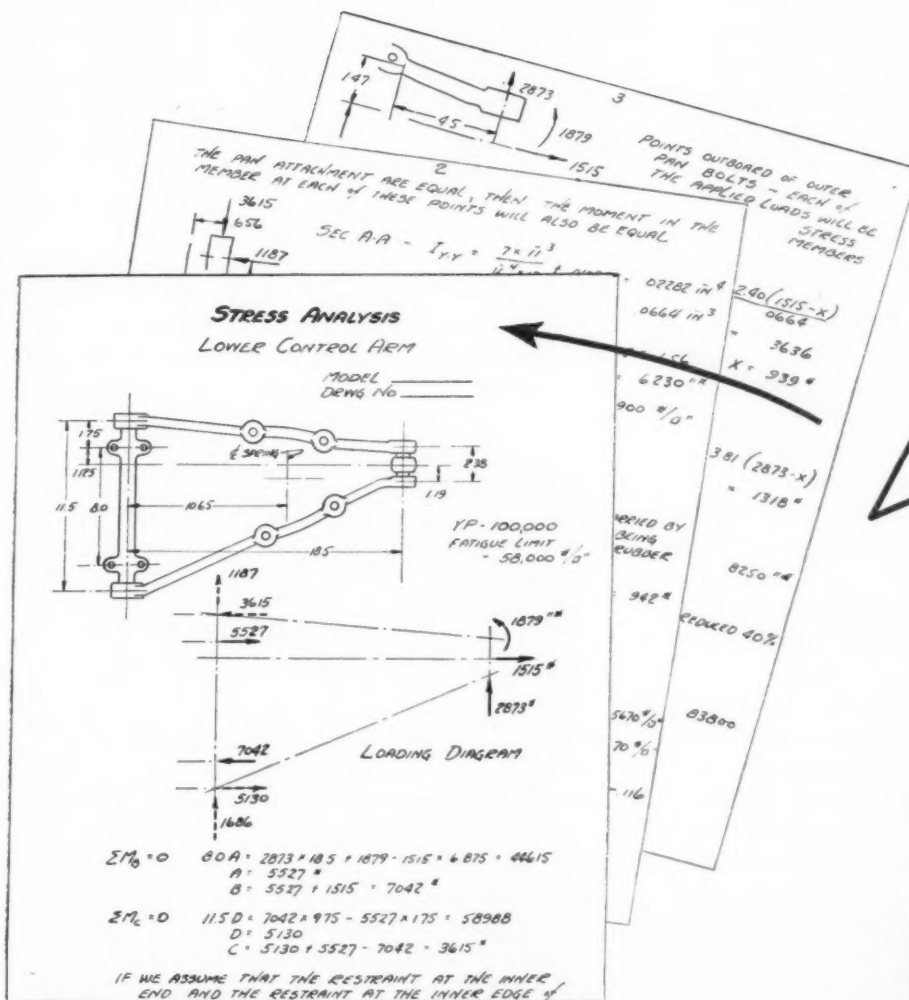 3
147
45
2873
1879
1515
POINTS OUTBOARD OF OUTER
PAN BOLTS - EACH of
THE APPLIED LOADS WILL BE
STRESS
MEMBERS
2.40(1515-X)
.0664
= 3636
X = 939 #
3.81 (2873-X)
= 1318 #
8250 "#
REDUCED 40%
83800
2
THE PAN ATTACHMENT ARE EQUAL, THEN THE MOMENT IN THE
MEMBER AT EACH of THESE POINTS WILL ALSO BE EQUAL
3615
656
1187
SEC A-A - I Y-Y =
= .02282 in⁴
.0664 in³
1.56
= 6230 "#
900 #/□"
CARRIED BY
BEING
RUBBER
= 942 #
5670 #/□"
70 #/□"
.116
STRESS ANALYSIS
LOWER CONTROL ARM
MODEL
DRWG NO
1.75
1.125
11.5
8.0
℄ SPRING
10.65
18.5
2.38
1.19
YP - 100,000
FATIGUE LIMIT
- 58,000 #/□"
1187
3615
5527
1879 "#
1515 #
2873 #
7042
5130
1686
LOADING DIAGRAM
ΣM_B = 0 8.0 A = 2873 × 18.5 + 1879 - 1515 × 6.875 = 44615
A = 5527 #
B = 5527 + 1515 = 7042 #
ΣM_C = 0 11.5 D = 7042 × 9.75 - 5527 × 1.75 = 58988
D = 5130
C = 5130 + 5527 - 7042 = 3615 #
IF WE ASSUME THAT THE RESTRAINT AT THE INNER
END AND THE RESTRAINT AT THE INNER EDGE of